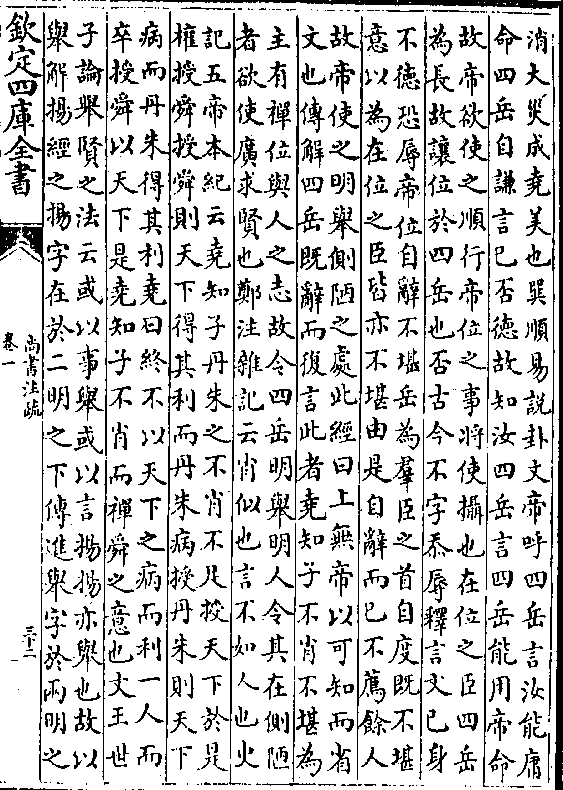 消大災成堯美也巽順易說卦文帝呼四岳言汝能庸
命四岳自謙言已否德故知汝四岳言四岳能用帝命
故帝欲使之順行帝位之事將使攝也在位之臣四岳
為長故讓位於四岳也否古今不字忝辱釋言文已身
不德恐辱帝位自辭不堪岳為羣臣之首自度既不堪
意以為在位之臣皆亦不堪由是自辭而已不薦餘人
故帝使之明舉側陋之處此經曰上無帝以可知而省
文也傳解四岳既辭而復言此者堯知子不肖不堪為
主有禪位與人之志故令四岳明舉明人令其在側陋
者欲使廣求賢也鄭注雜記云肖似也言不如人也史
記五帝本紀云堯知子丹朱之不肖不足授天下於是
權授舜授舜則天下得其利而丹朱病授丹朱則天下
病而丹朱得其利堯曰終不以天下之病而利一人而
卒授舜以天下是堯知子不肖而禪舜之意也文王世
子論舉賢之法云或以事舉或以言揚揚亦舉也故以
舉解揚經之揚字在於二明之下傳進舉字於兩明之
欽定四庫全書
尚書注疏
卷一
三十二